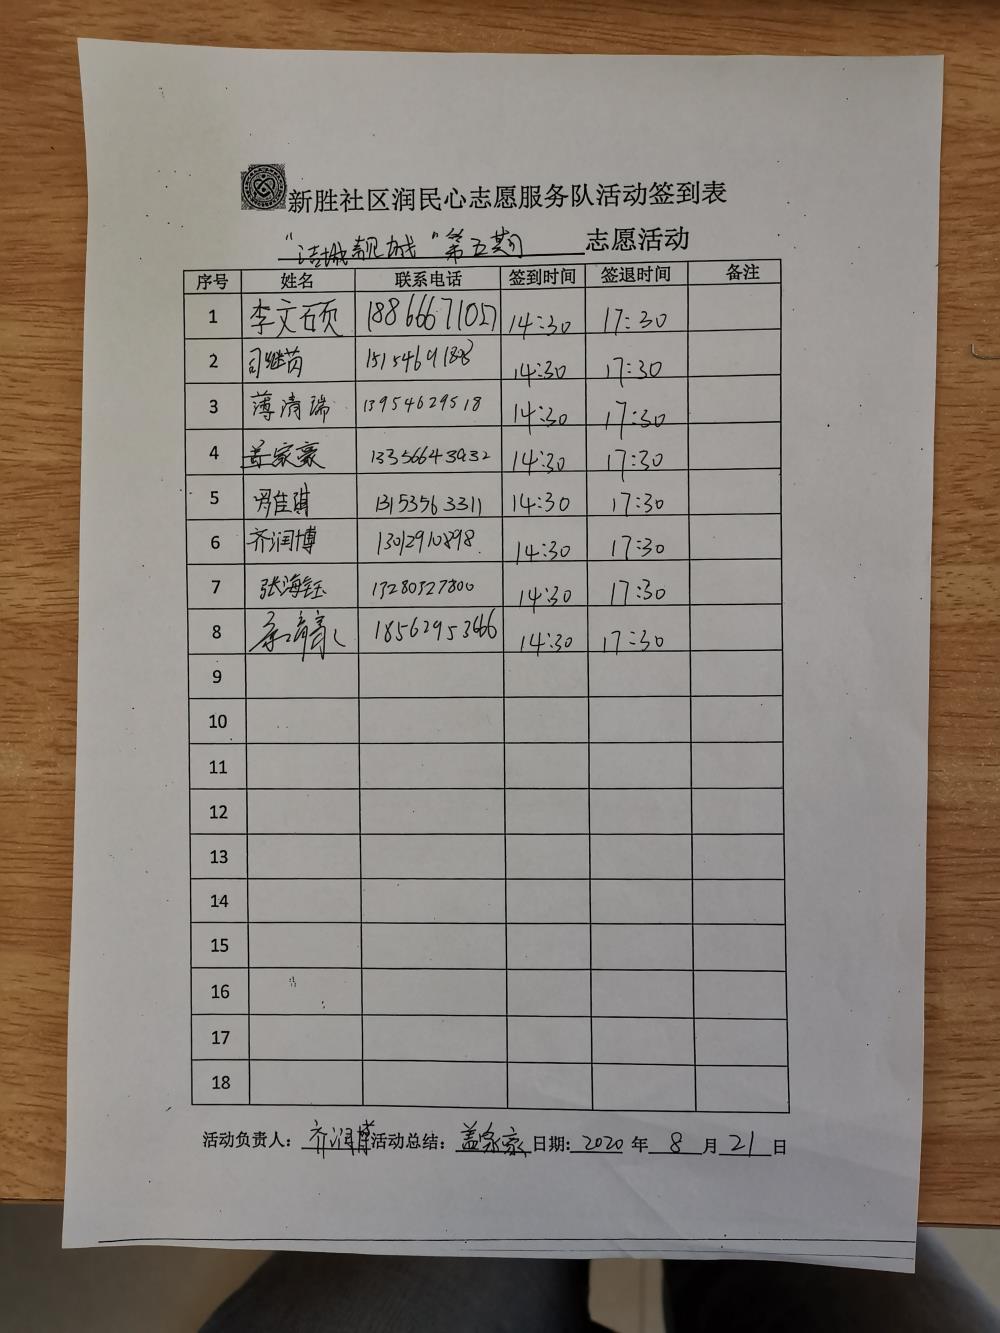 新胜社区润民心志愿服务队活动签到表
"洁城靓城"第五期 志愿活动
序号 姓名 联系电话 签到时间 签退时间 备注
1 李文硕 14:30 17:30
2 司继芮 14:30 17:30
3 薄清瑞 13954629518 14:30 17:30
4 盖家豪 13356643932 14:30 17:30
5 罗佳琪 13153563311 14:30 17:30
6 齐润博 13012910898 14:30 17:30
7 张海钰 13280527800 14:30 17:30
8 14:30 17:30
9
10
11
12
13
14
15
16
17
18
活动负责人: 齐润博 活动总结: 盖家豪 日期: 2020 年 8 月 21 日